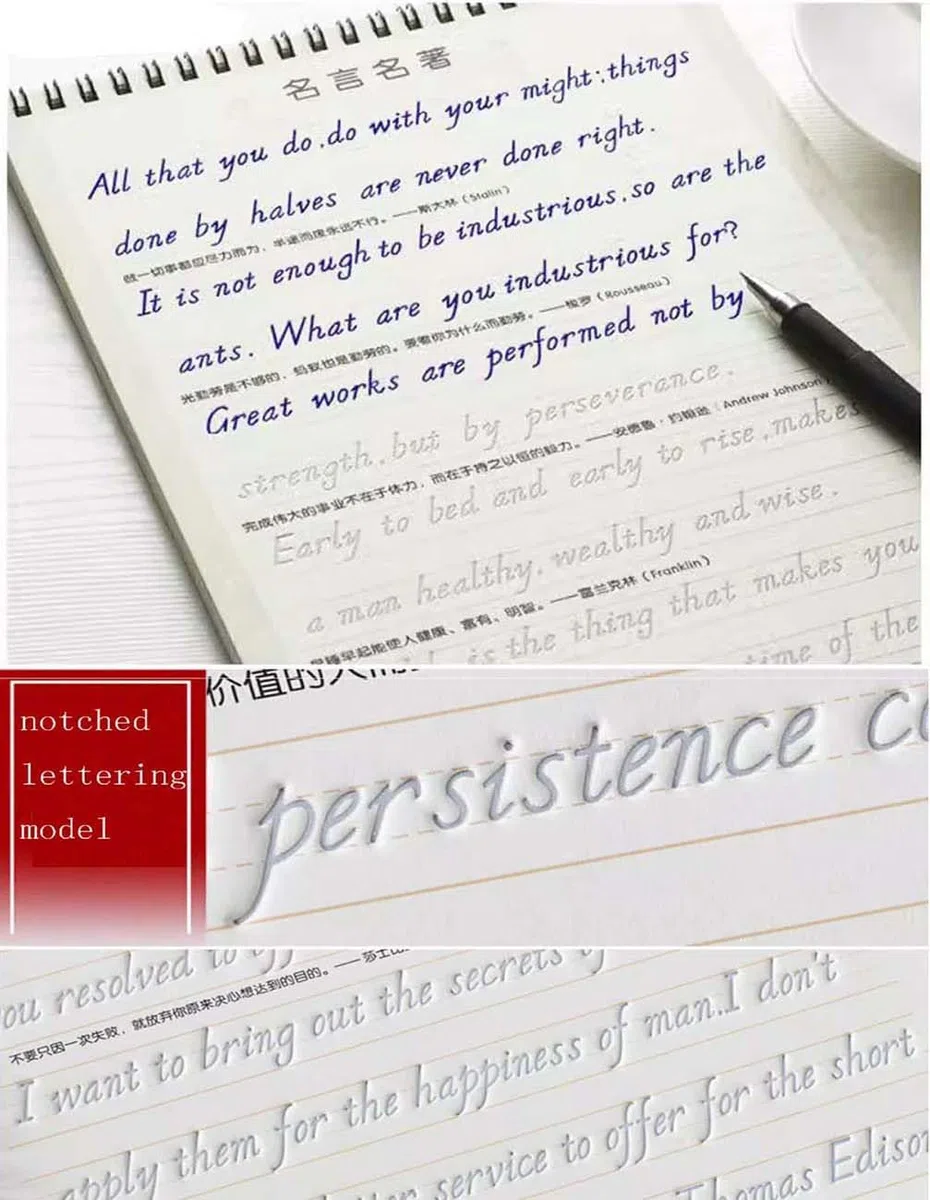 名言名著
All that you do,do with your might:things
done by halves are never done right.
做一切事都应尽力而为，半途而废永远不行。——斯大林（Stalin）
It is not enough to be industrious,so are the
ants. What are you industrious for?
光勤劳是不够的，蚂蚁也是勤劳的。要看你为什么而勤劳。——梭罗（Rousseau）
Great works are performed not by
strength,but by perseverance.
完成伟大的事业不在于体力，而在于持之以恒的毅力。——安德鲁·约翰逊（Andrew Johnson）
Early to bed and early to rise,makes
a man healthy,wealthy and wise.
早起能使人健康、富有、明智。——富兰克林（Franklin）
is the thing that makes you
time of the
notched
lettering
model
价值的人
persistence
ou resolved to
不要只因一次失败，就放弃你原来决心想达到的目的。——莎士比
I want to bring out the secrets
apply them for the happiness of man.I don't
service to offer for the short
Thomas Edison